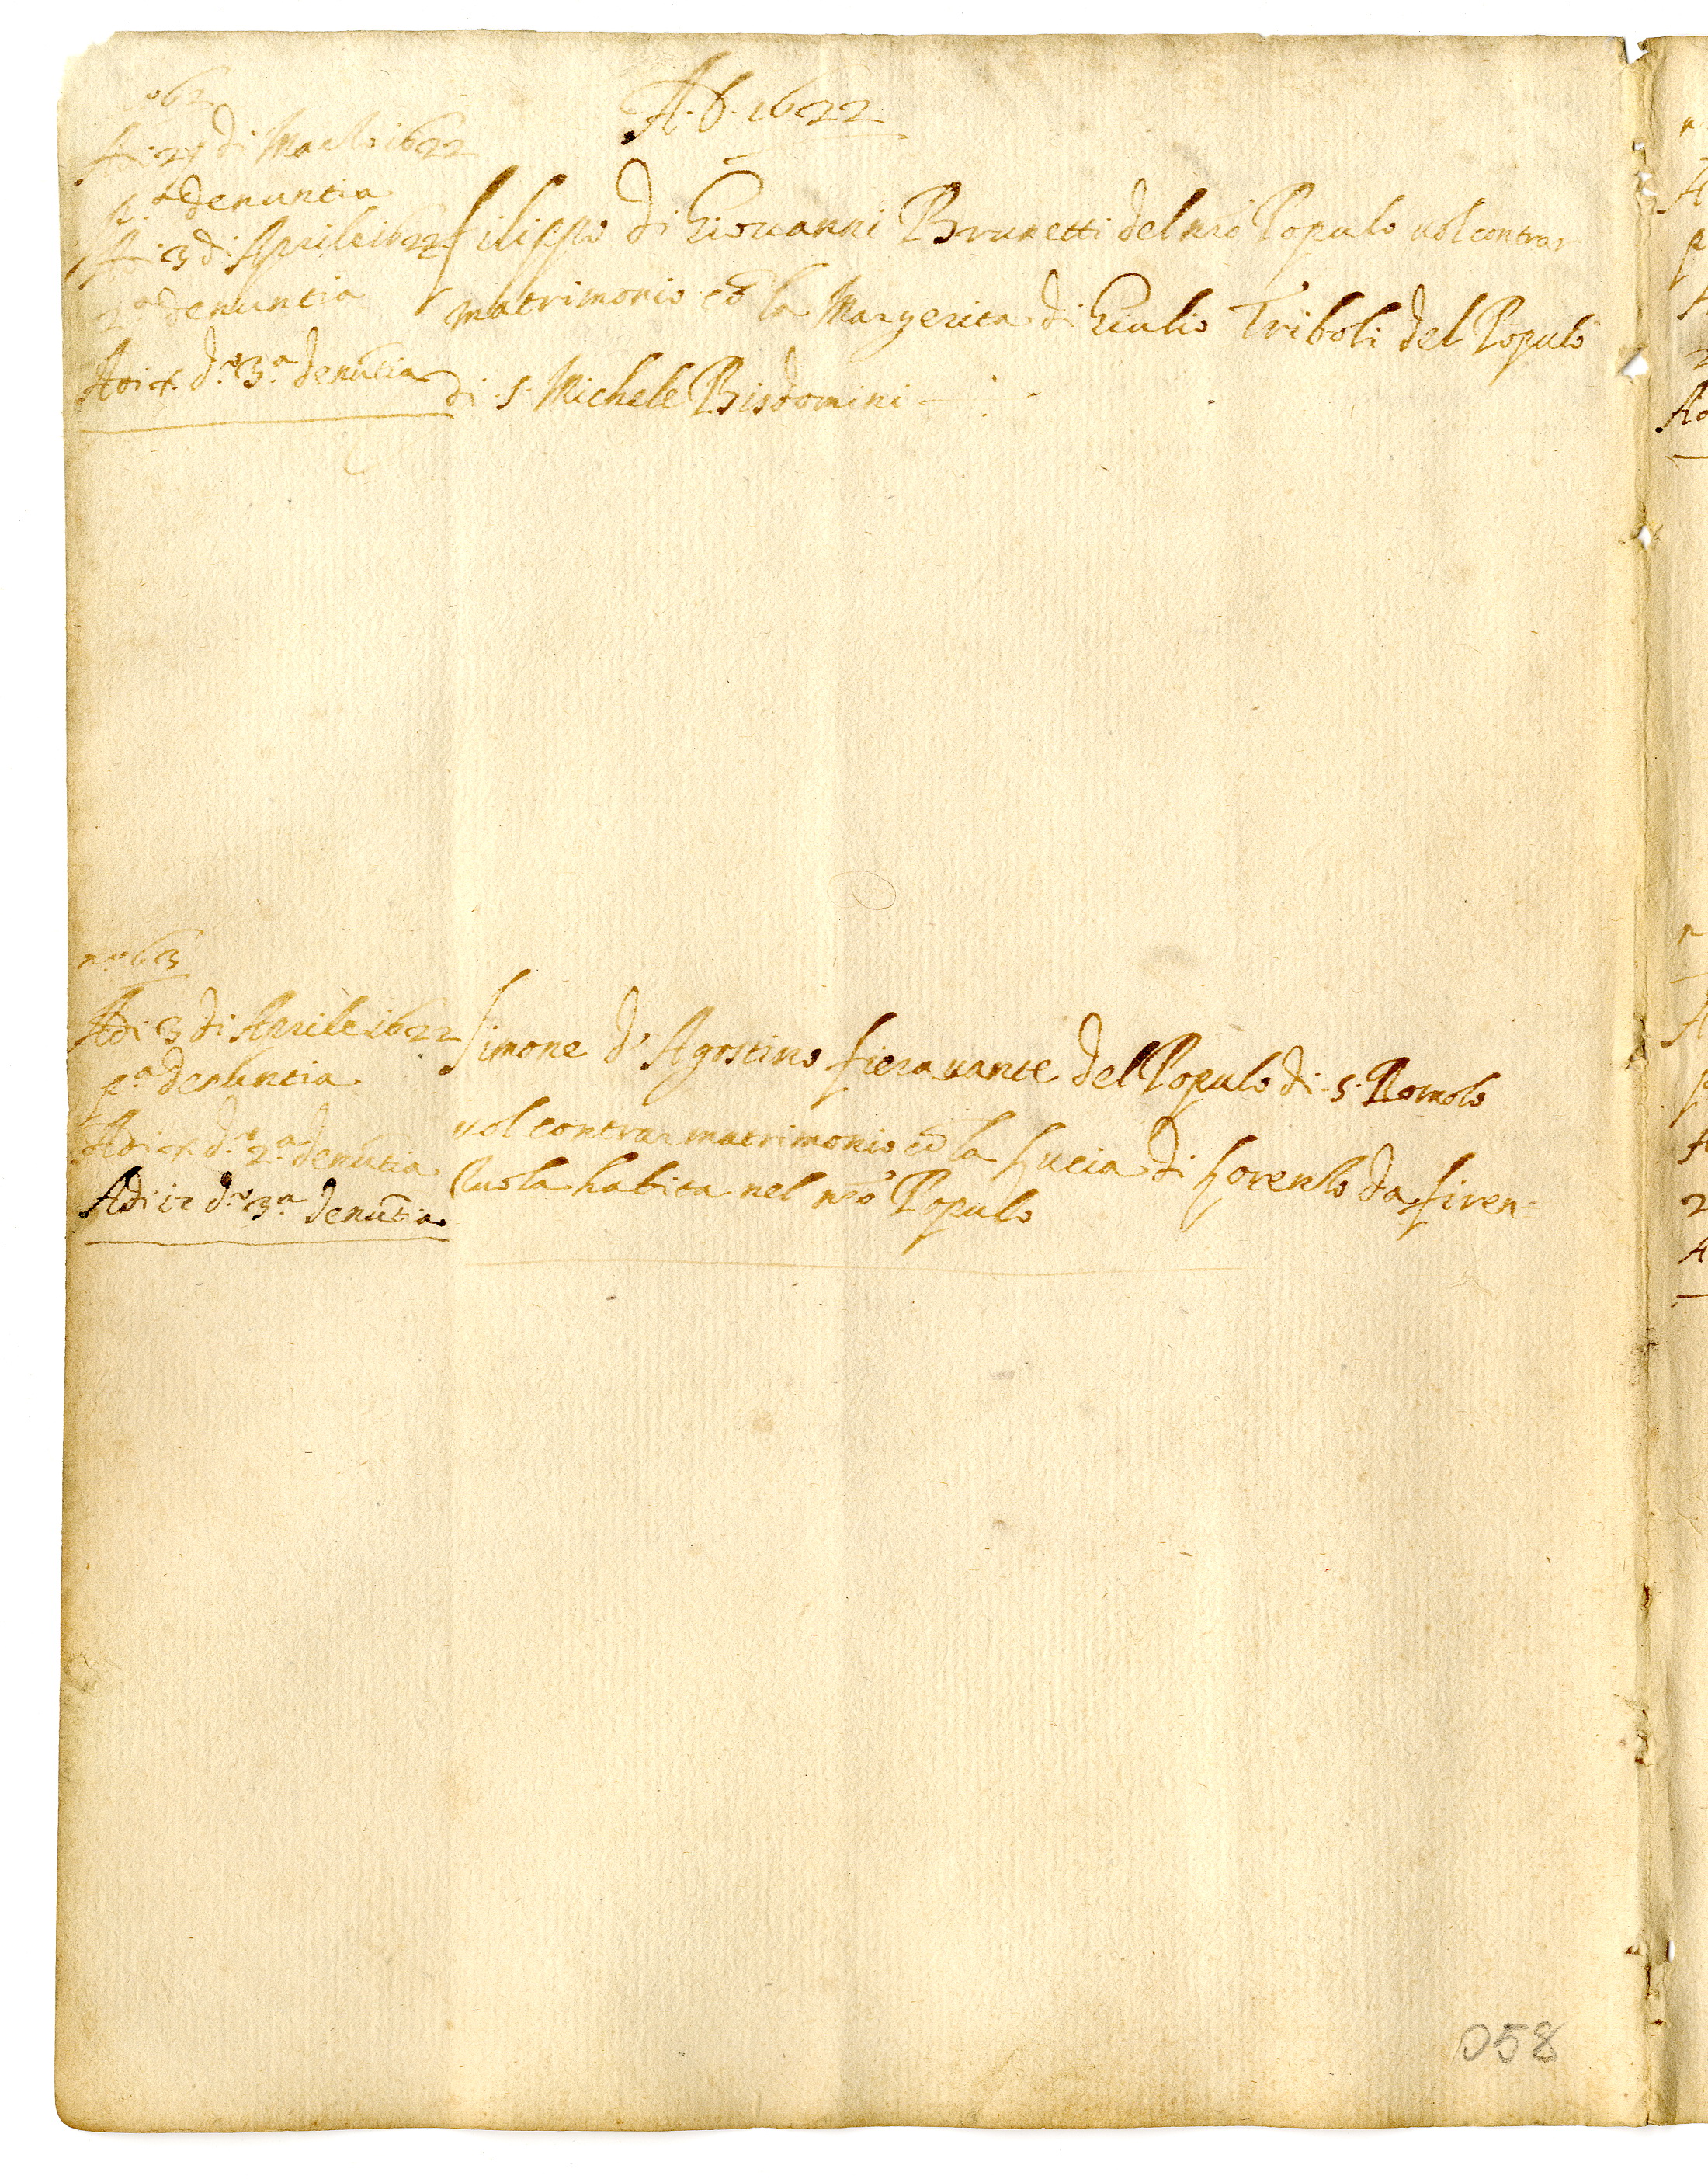 A. D. 1622
nº 62
Adi 27 di Marzo 1622
p.ª denuntia
Adi 3 di Aprile 1622
2.ª denuntia
Adi x. d.º 3.ª denũtia
Filippo di Giovanni Brunetti del nrõ Popolo vol contrar
matrimonio cõ la Margerita di Giulio Triboli del Popolo
di S. Michele Bisdomini
nº 63
Adi 3 di Aprile 1622
p.ª denuntia
Adi x. d.º 2.ª denũtia
Adi 17 d.º 3.ª denũtia
Simone d'Agostino fieravante del Popolo di S. Romolo
vol contrar matrimonio cõ la Lucia di Lorenzo da firen=
zuola habita nel nrõ Popolo
058